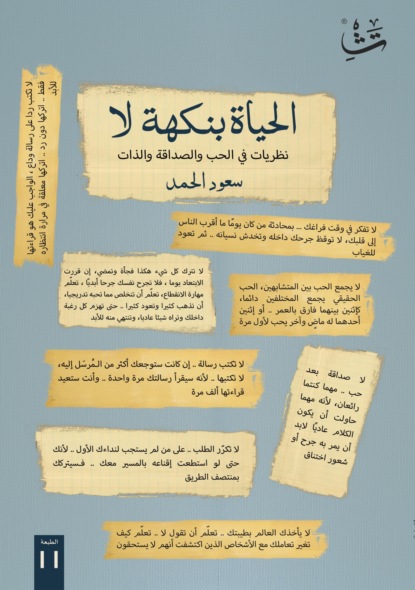 تشكيل
الحياة بنكهة لا
نظريات في الحب والصداقة والذات
سعود الحمد
لا تكتب ردا على رسالة وداع ، الواجب عليك هو قراءتها
فقط .. اتركها دون رد .. اتركها معلقة في مرارة انتظاره
للأبد
لا تفكر في وقت فراغك ... بمحادثة من كان يومًا ما أقرب الناس
إلى قلبك، لا توقظ جرحك داخله وتخدش نسيانه .. ثم تعود
للغياب
لا تترك كل شيء هكذا فجأة وتمضي، إن قررت
الابتعاد يوما ، فلا تجرح نفسك جرحا أبديًا ، تعلّم
مهارة الانقطاع، تعلّم أن تتخلص مما تحبه تدريجيا،
أن تذهب كثيرا وتعود كثيرا .. حتى تهزم كل رغبة
داخلك وتراه شيئا عاديا، وتنتهي منه للأبد
لا يجمع الحب بين المتشابهين، الحب
الحقيقي يجمع المختلفين دائما،
كإثنين بينهما فارق بالعمر .. أو إثنين
أحدهما له ماضٍ وآخر يحب لأول مرة
لا تكتب رسالة .. إن كانت ستوجعك أكثر من المُرسَل إليه،
لا تكتبها .. لأنه سيقرأ رسالتك مرة واحدة .. وأنت ستعيد
قراءتها ألف مرة
لا صداقة بعد
حب .. مهما كنتما
رائعان، لأنه مهما
حاولت أن يكون
الكلام عاديًا لابد
أن يمر به جرح أو
شعور اختناق
لا تكرّر الطلب .. على من لم يستجب لنداءك الأول .. لأنك
حتى لو استطعت إقناعه بالمسير معك .. فسيتركك
بمنتصف الطريق
لا يأخذك العالم بطيبتك .. تعلّم أن تقول لا .. تعلّم كيف
تغير تعاملك مع الأشخاص الذين اكتشفت أنهم لا يستحقون
الطبعة
١١